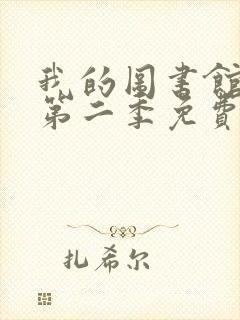 我的圖書館
第二季免費
扎希尔